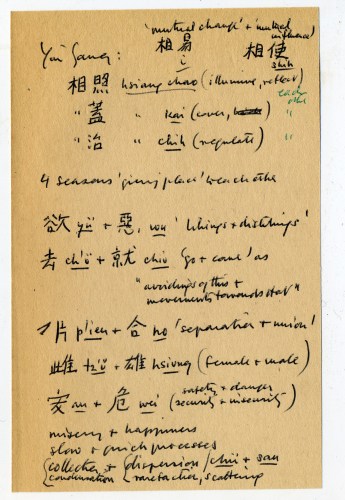 'mutual change' + 'mutual influence'
相易 相使
Yin Yang: i shih
相照 hsiang chao (illumine, reflect)
each other
" 蓋 " kai (cover, "
" 治 " chih (regulate) "
4 seasons 'giving place' to each other
欲 yü + 惡, wu 'likings + dislikings'
去 ch'ü + 就 chiu 'go + come' as
"avoidings of this +
movements towards that"
片 p'ien + 合 ho 'separation + union'
雌 tz'ü + 雄 hsiung (female + male)
安 an + 危 wei (safety + danger
security + insecurity)
misery + happiness
slow + quick processes
collection + dispersion / chü + san
condensation rarefaction, scattering